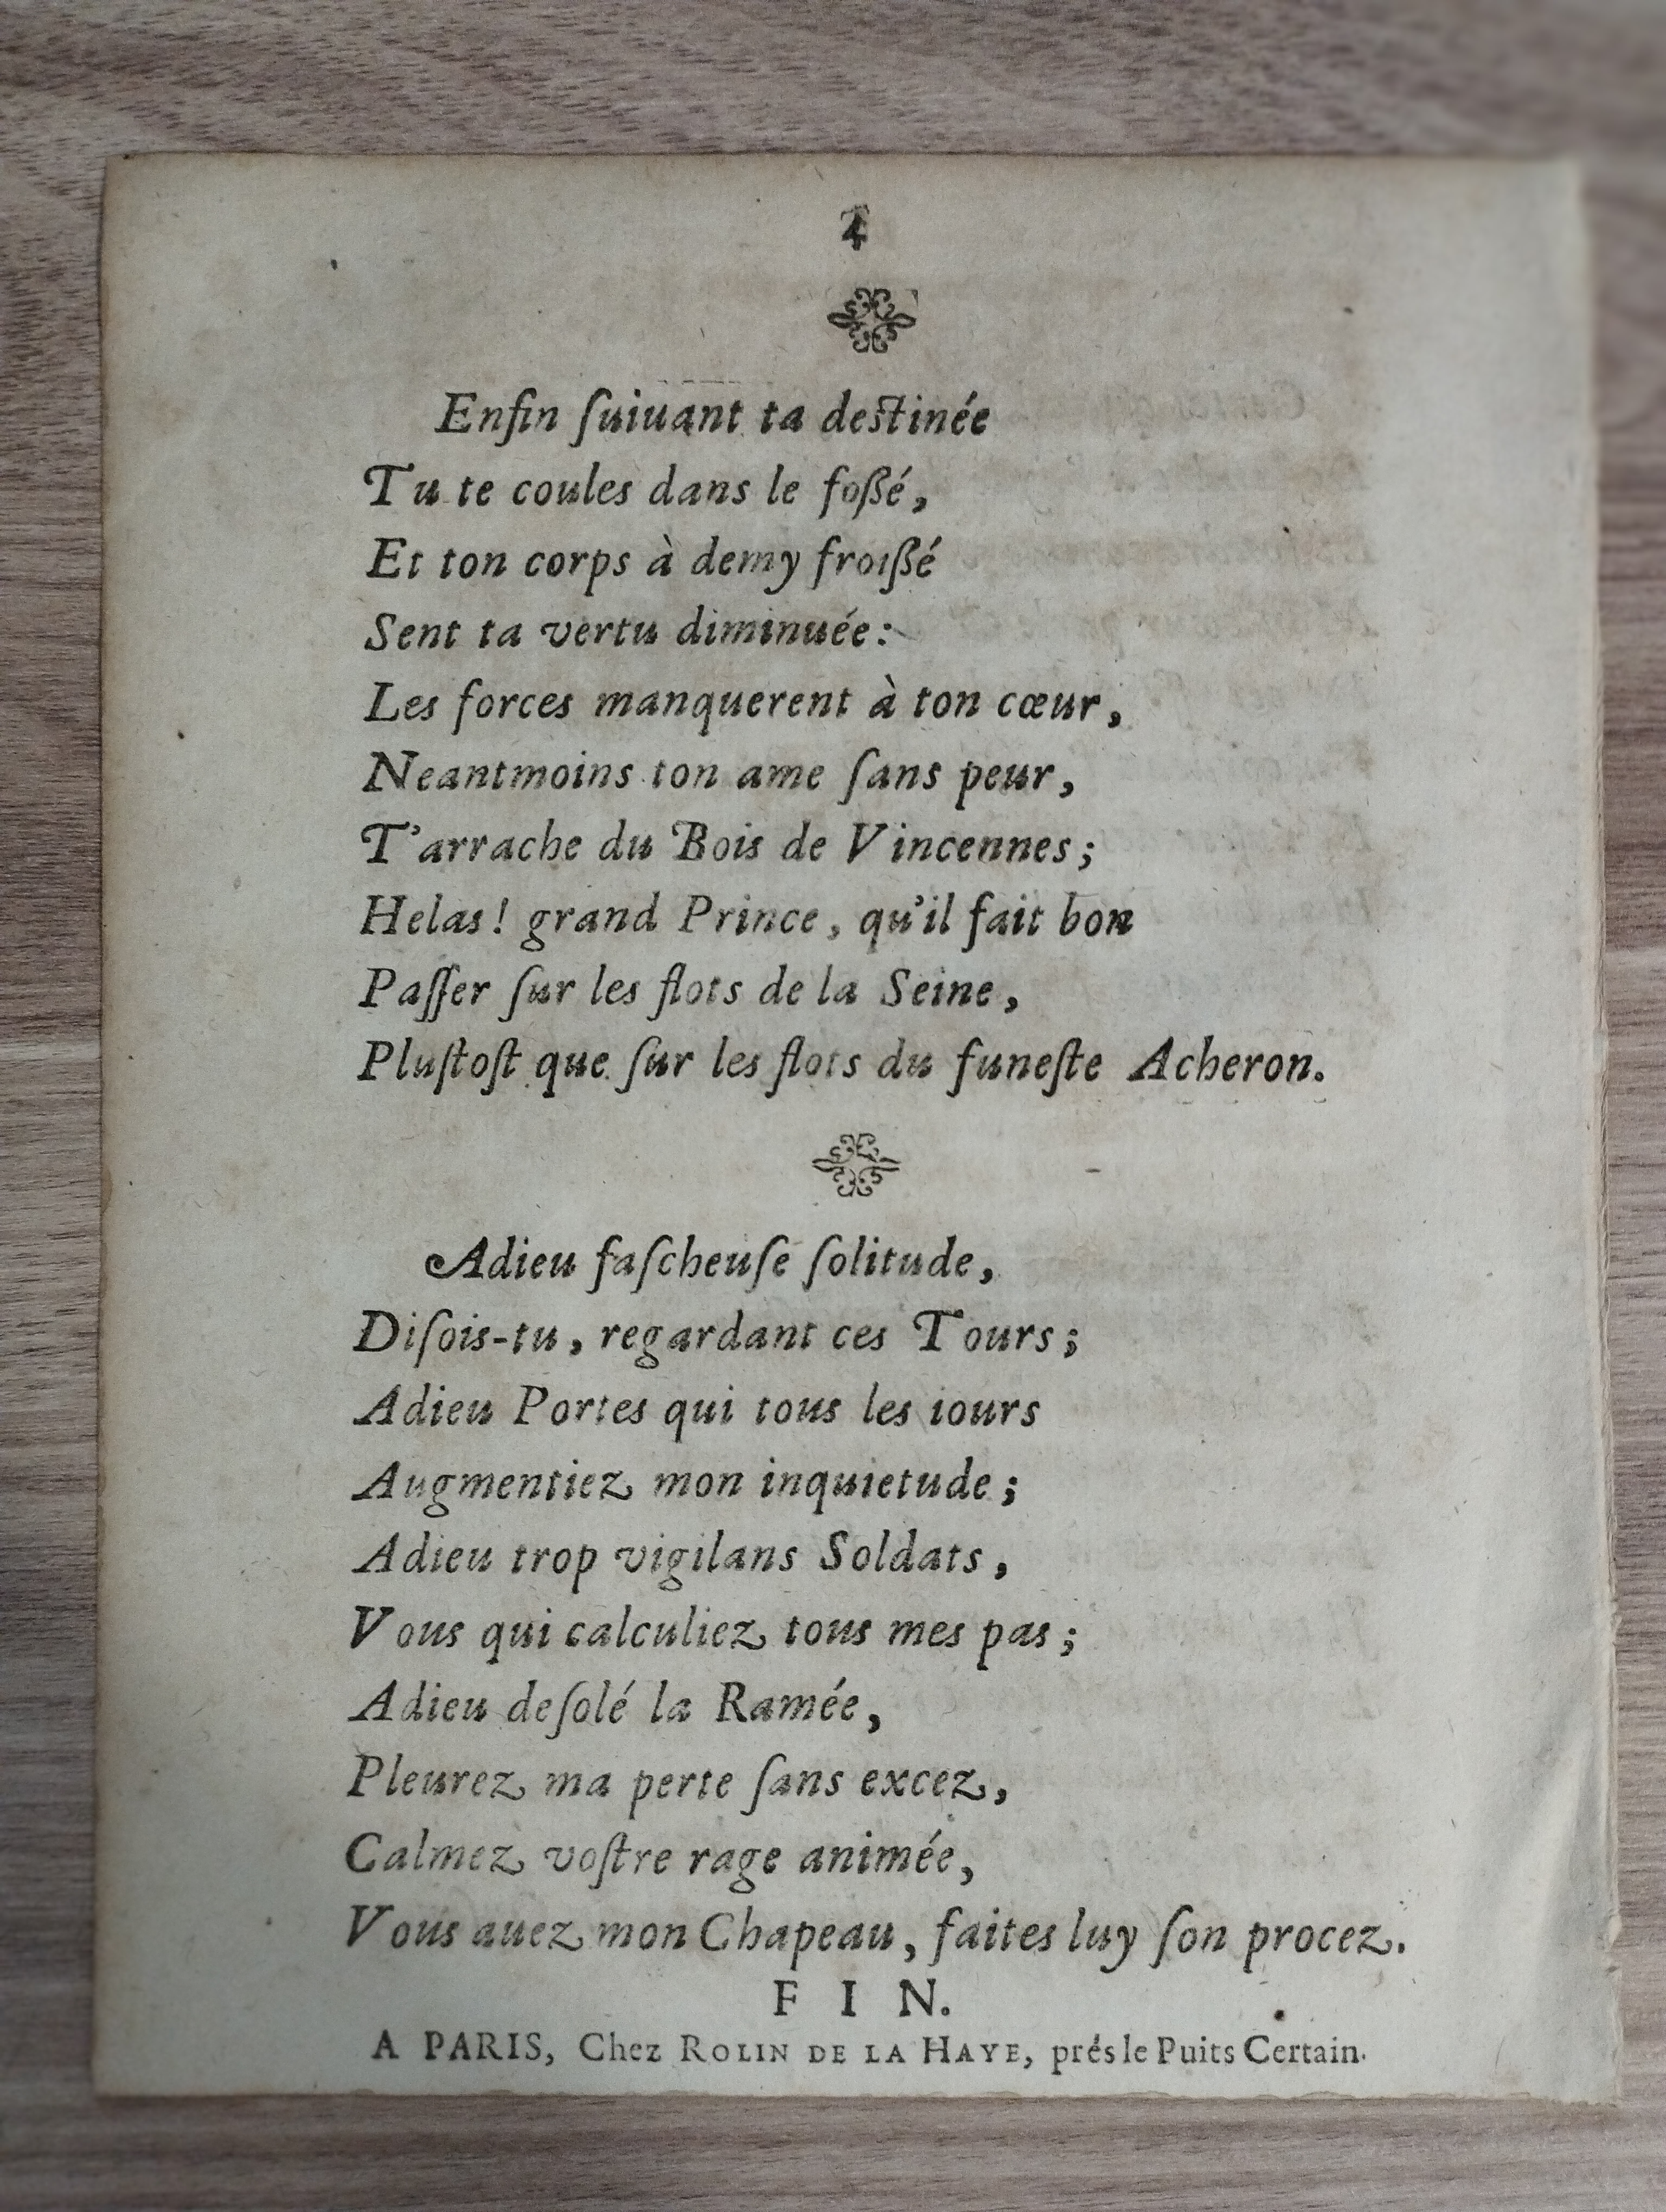 4
Enfin ſuiuant ta deſtinée
Tu te coules dans le foßé,
Et ton corps à demy froißé
Sent ta vertu diminuée:
Les forces manquerent à ton cœur,
Neantmoins ton ame ſans peur,
T'arrache du Bois de Vincennes;
Helas! grand Prince, qu'il fait bon
Paſſer ſur les flots de la Seine,
Pluſtoſt que ſur les flots du funeſte Acheron.
Adieu faſcheuſe ſolitude,
Diſois-tu, regardant ces Tours;
Adieu Portes qui tous les iours
Augmentiez mon inquietude;
Adieu trop vigilans Soldats,
Vous qui calculiez tous mes pas;
Adieu deſolé la Ramée,
Pleurez ma perte ſans excez,
Calmez voſtre rage animée,
Vous auez mon Chapeau, faites luy ſon procez.
FIN.
A PARIS, Chez ROLIN DE LA HAYE, prés le Puits Certain.